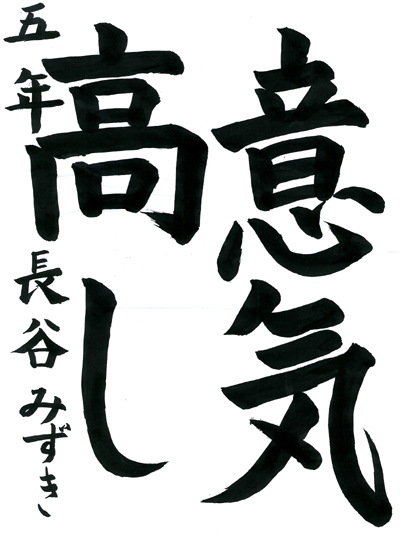 意気
高し
五年 長谷みずき